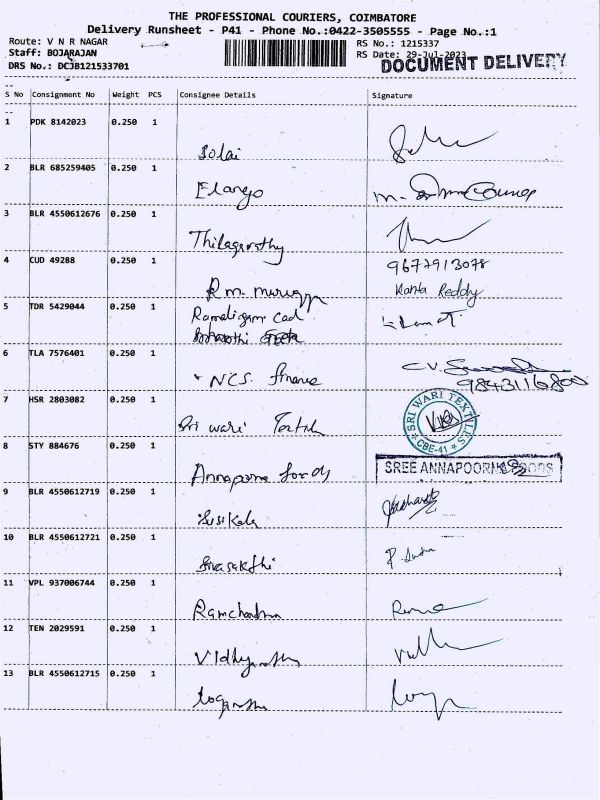 THE PROFESSIONAL COURIERS, COIMBATORE
Delivery Runsheet - P41 - Phone No.:0422-3505555 - Page No.:1
Route: V N R NAGAR
RS No.: 1215337
Staff: BOJARAJAN
RS Date: 29-Jul-2023
DRS No.: DCJB121533701
DOCUMENT DELIVERY
S No Consignment No Weight PCS Consignee Details Signature
1 PDK 8142023 0.250 1
Solai
2 BLR 685259405 0.250 1
Elango
3 BLR 4550612676 0.250 1
Thilagavathy
4 CUD 49288 0.250 1
9677913078
R.m. murugan
Kanta Reddy
5 TDR 5429044 0.250 1
Ramalingam cad
6 TLA 7576401 0.250 1
NCS. finance
9843116800
7 HSR 2803082 0.250 1
SRI WARI TEXTILES
CBE-41
Sri wari
8 STY 884676 0.250 1
SREE ANNAPOORNA FOODS
Annapoorna foods
9 BLR 4550612719 0.250 1
Susikala
10 BLR 4550612721 0.250 1
Sivasakthi
11 VPL 937006744 0.250 1
Ramchandran
12 TEN 2029591 0.250 1
13 BLR 4550612715 0.250 1